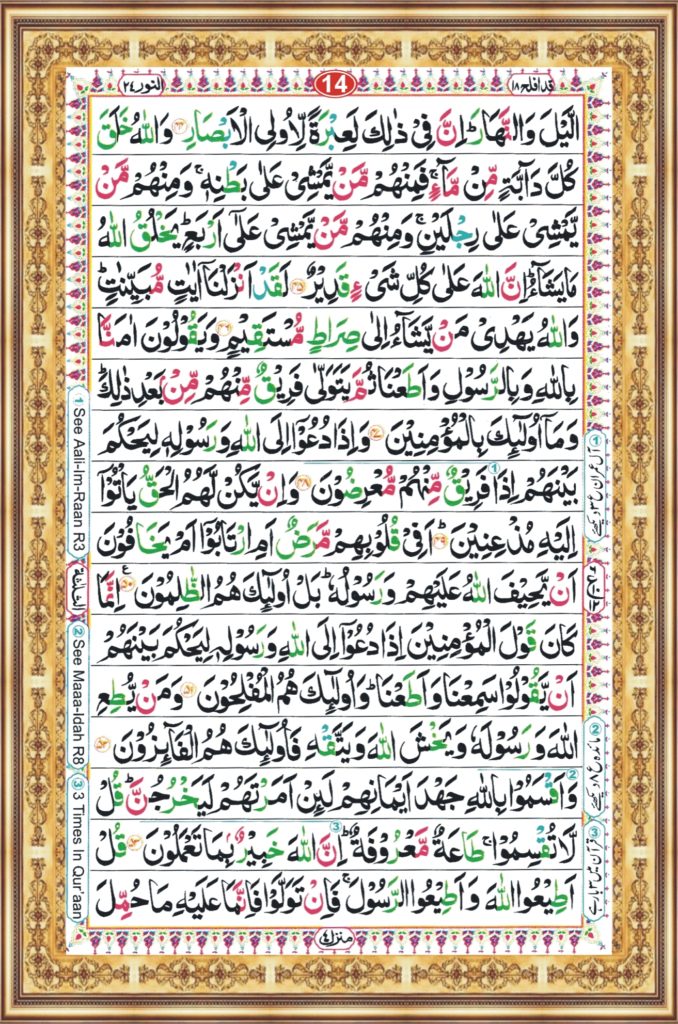 النور ٢٤
14
قد افلح ١٨
الَّيْلَ وَالنَّهَارَ ؕ اِنَّ فِیْ ذٰلِكَ لَعِبْرَةً لِّاُولِی الْاَبْصَارِ ﴿۴۴﴾ وَاللّٰهُ خَلَقَ
كُلَّ دَآبَّةٍ مِّنْ مَّآءٍ ۚ فَمِنْهُمْ مَّنْ يَّمْشِیْ عَلٰی بَطْنِهٖ ۚ وَمِنْهُمْ مَّنْ
يَّمْشِیْ عَلٰی رِجْلَيْنِ ۚ وَمِنْهُمْ مَّنْ يَّمْشِیْ عَلٰۤی اَرْبَعٍ ؕ يَخْلُقُ اللّٰهُ
مَا يَشَآءُ ؕ اِنَّ اللّٰهَ عَلٰی كُلِّ شَیْءٍ قَدِيْرٌ ﴿۴۵﴾ لَقَدْ اَنْزَلْنَاۤ اٰيٰتٍ مُّبَيِّنٰتٍ ؕ
وَاللّٰهُ يَهْدِیْ مَنْ يَّشَآءُ اِلٰی صِرَاطٍ مُّسْتَقِيْمٍ ﴿۴۶﴾ وَيَقُوْلُوْنَ اٰمَنَّا
بِاللّٰهِ وَبِالرَّسُوْلِ وَاَطَعْنَا ثُمَّ يَتَوَلّٰی فَرِيْقٌ مِّنْهُمْ مِّنْۢ بَعْدِ ذٰلِكَ ؕ
وَمَاۤ اُولٰٓئِكَ بِالْمُؤْمِنِيْنَ ﴿۴۷﴾ وَاِذَا دُعُوْۤا اِلَی اللّٰهِ وَرَسُوْلِهٖ لِيَحْكُمَ
بَيْنَهُمْ اِذَا فَرِيْقٌ مِّنْهُمْ مُّعْرِضُوْنَ ﴿۴۸﴾ وَاِنْ يَّكُنْ لَّهُمُ الْحَقُّ يَاْتُوْۤا
اِلَيْهِ مُذْعِنِيْنَ ؕ ﴿۴۹﴾ اَفِیْ قُلُوْبِهِمْ مَّرَضٌ اَمِ ارْتَابُوْۤا اَمْ يَخَافُوْنَ
اَنْ يَّحِيْفَ اللّٰهُ عَلَيْهِمْ وَرَسُوْلُهٗ ؕ بَلْ اُولٰٓئِكَ هُمُ الظّٰلِمُوْنَ ﴿۵۰﴾ اِنَّمَا
كَانَ قَوْلَ الْمُؤْمِنِيْنَ اِذَا دُعُوْۤا اِلَی اللّٰهِ وَرَسُوْلِهٖ لِيَحْكُمَ بَيْنَهُمْ
اَنْ يَّقُوْلُوْا سَمِعْنَا وَاَطَعْنَا ؕ وَاُولٰٓئِكَ هُمُ الْمُفْلِحُوْنَ ﴿۵۱﴾ وَمَنْ يُّطِعِ
اللّٰهَ وَرَسُوْلَهٗ وَيَخْشَ اللّٰهَ وَيَتَّقْهِ فَاُولٰٓئِكَ هُمُ الْفَآئِزُوْنَ ﴿۵۲﴾
وَاَقْسَمُوْا بِاللّٰهِ جَهْدَ اَيْمَانِهِمْ لَئِنْ اَمَرْتَهُمْ لَيَخْرُجُنَّ ؕ قُلْ
لَّا تُقْسِمُوْا ۚ طَاعَةٌ مَّعْرُوْفَةٌ ؕ اِنَّ اللّٰهَ خَبِيْرٌۢ بِمَا تَعْمَلُوْنَ ﴿۵۳﴾ قُلْ
اَطِيْعُوا اللّٰهَ وَاَطِيْعُوا الرَّسُوْلَ ۚ فَاِنْ تَوَلَّوْا فَاِنَّمَا عَلَيْهِ مَا حُمِّلَ
منزل ٤
1 See Aali-Im-Raan R3
2 See Maaa-Idah R8
3 3 Times In Qur'aan